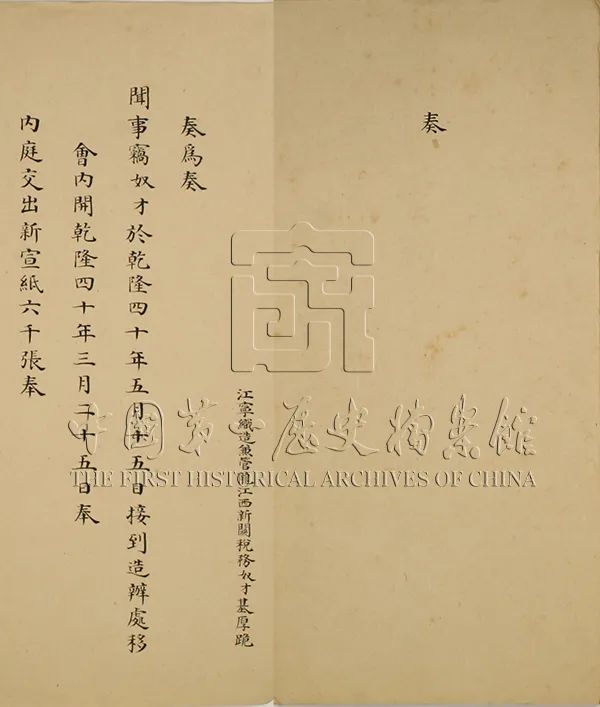 奏
江寧織造兼管龍江西新關稅務奴才基厚跪
奏為奏
聞事竊奴才於乾隆四十年五月十五日接到造辦處移
會內開乾隆四十年三月二十五日奉
內庭交出新宣紙六千張奉
中國第一歷史檔案館
THE FIRST HISTORICAL ARCHIVES OF CHINA